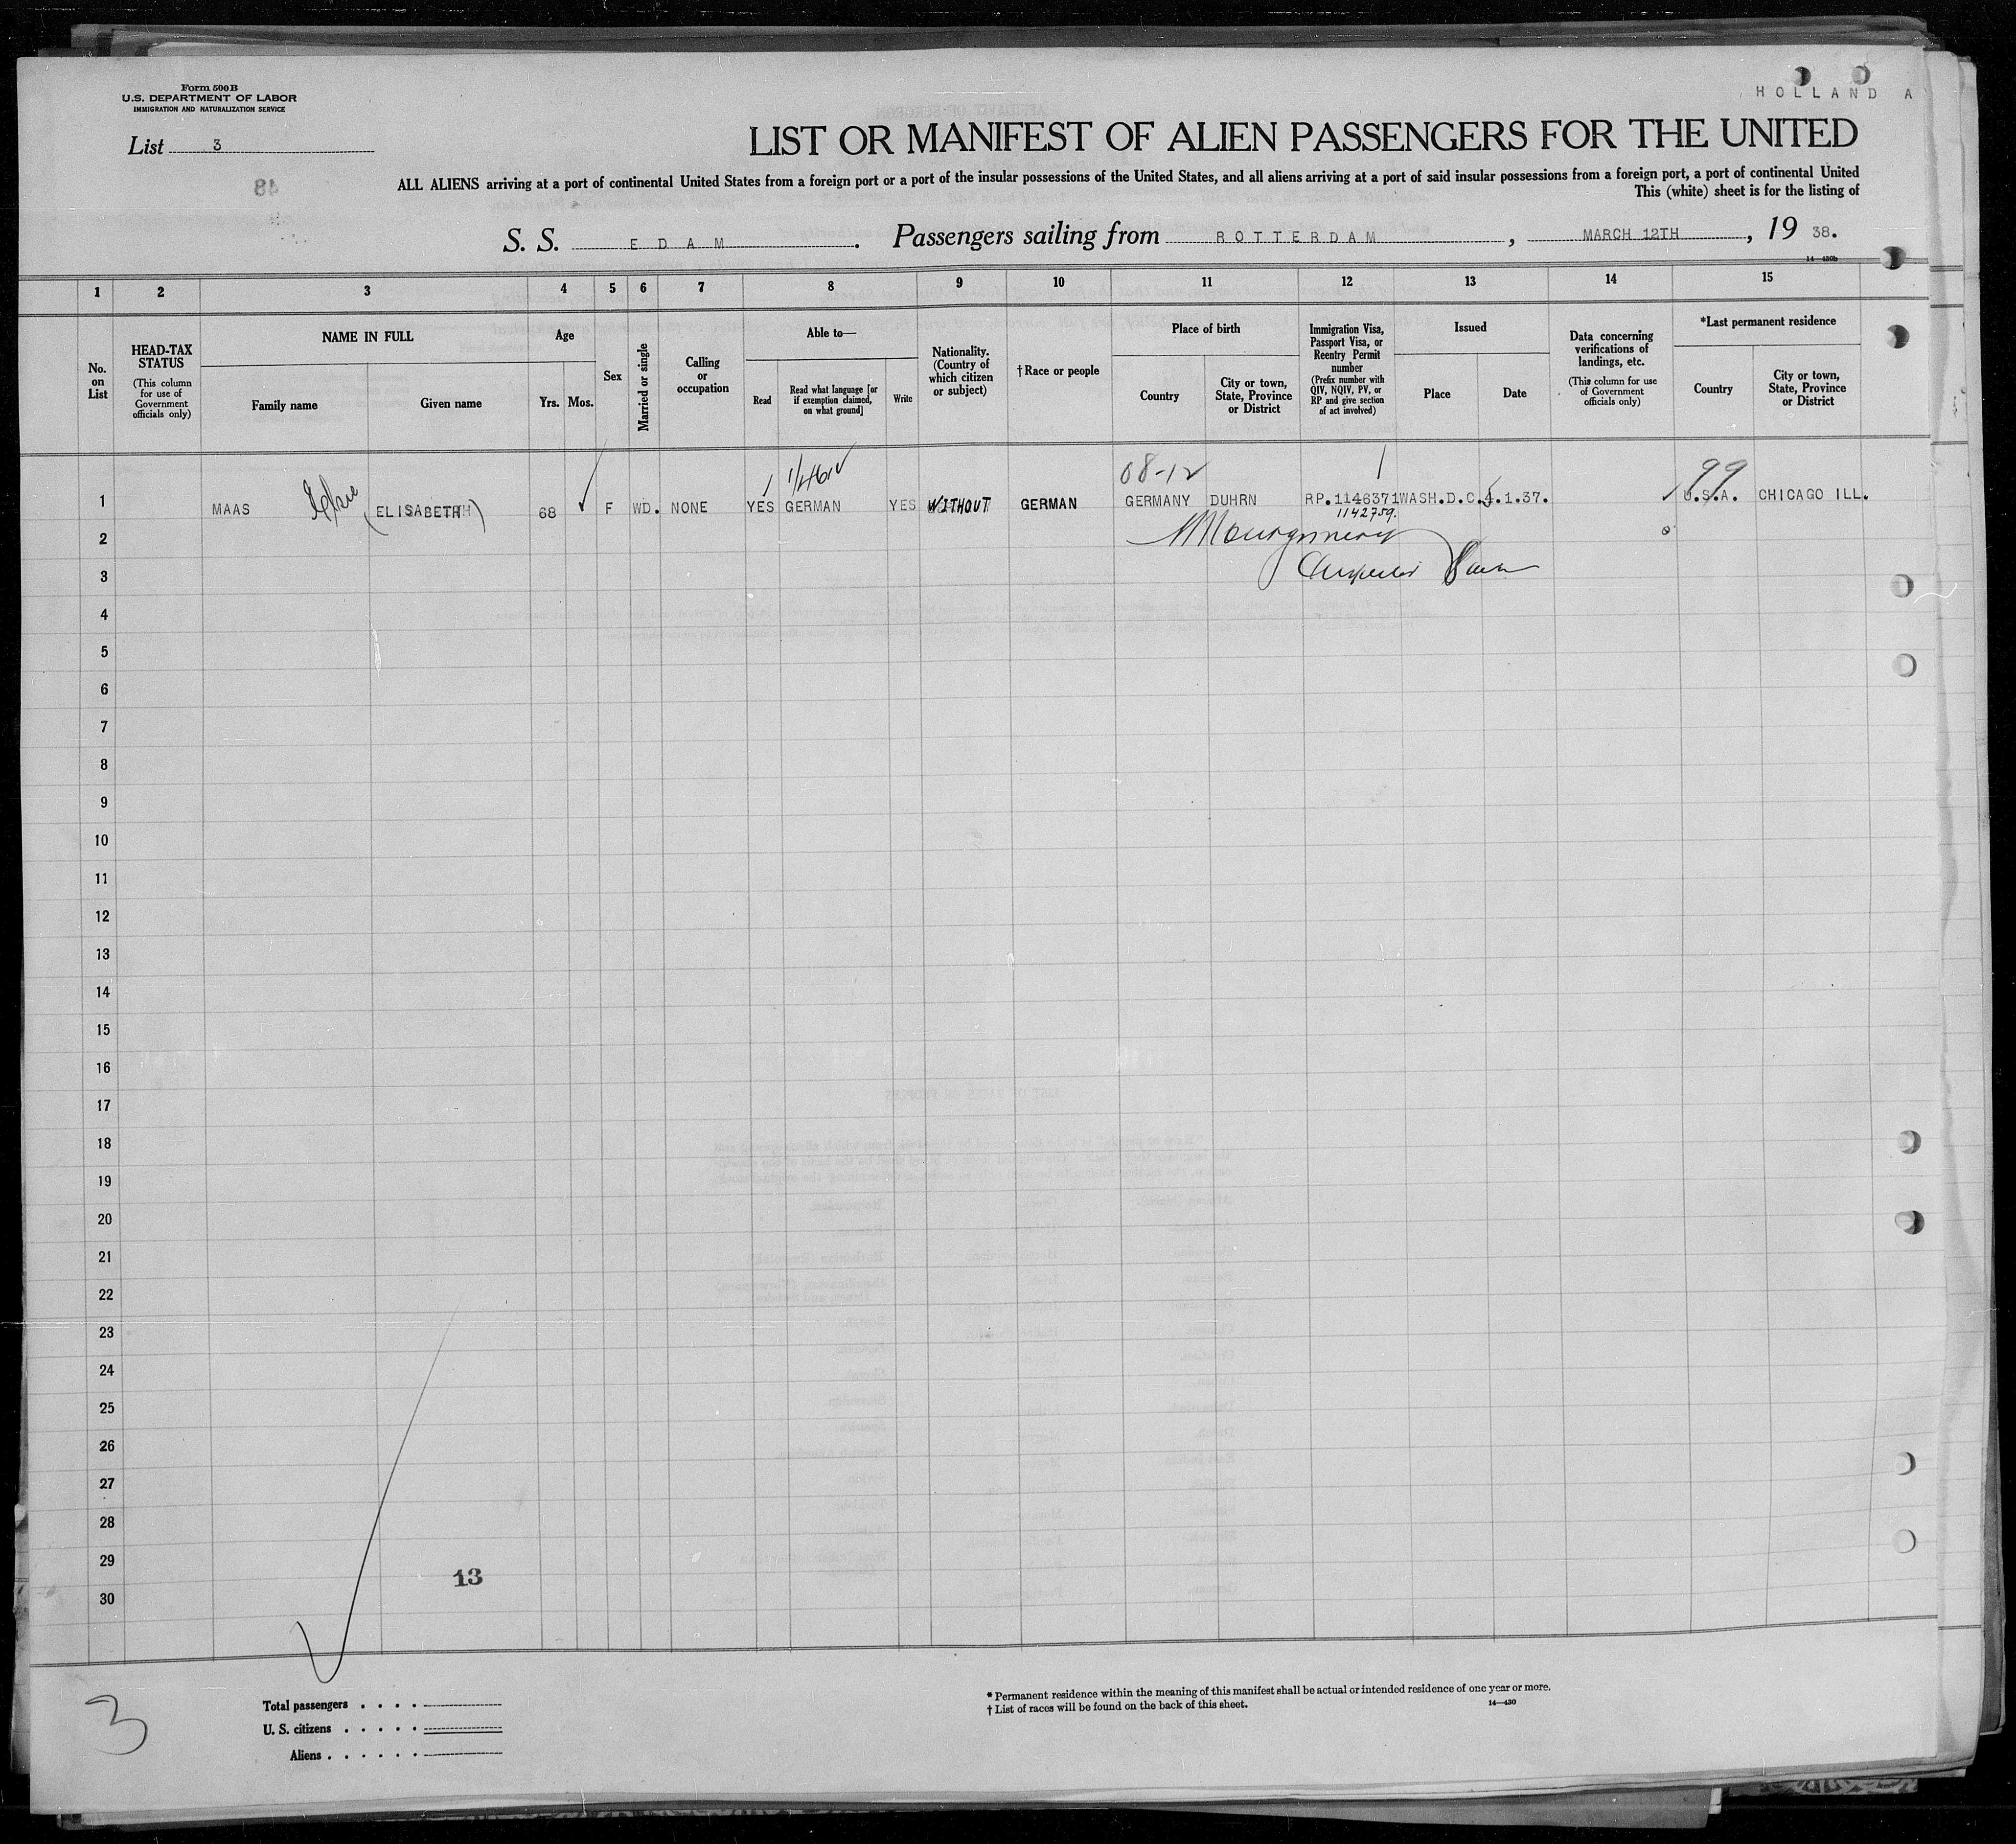 Form 500 B
U.S. DEPARTMENT OF LABOR
IMMIGRATION AND NATURALIZATION SERVICE
HOLLAND A
List 3
LIST OR MANIFEST OF ALIEN PASSENGERS FOR THE UNITED
48
ALL ALIENS arriving at a port of continental United States from a foreign port or a port of the insular possessions of the United States, and all aliens arriving at a port of said insular possessions from a foreign port, a port of continental United
This (white) sheet is for the listing of
S. S. EDAM. Passengers sailing from ROTTERDAM, MARCH 12TH, 19 38.
14—430b
1 2 3 4 5 6 7 8 9 10 11 12 13 14 15
No. on List
HEAD-TAX STATUS
(This column for use of Government officials only)
NAME IN FULL
Family name
Given name
Age
Yrs. Mos.
Sex
Married or single
Calling or occupation
Able to—
Read
Read what language [or if exemption claimed, on what ground]
Write
Nationality. (Country of which citizen or subject)
†Race or people
Place of birth
Country
City or town, State, Province or District
Immigration Visa, Passport Visa, or Reentry Permit number
(Prefix number with QIV, NQIV, PV, or RP and give section of act involved)
Issued
Place
Date
Data concerning verifications of landings, etc.
(This column for use of Government officials only)
*Last permanent residence
Country
City or town, State, Province or District
08-12
99
1 MAAS (ELISABETH) 68 F WD. NONE YES GERMAN YES WITHOUT GERMAN GERMANY DUHRN RP.1146371 WASH.D.C. 4.1.37. U.S.A. CHICAGO ILL.
1142759.
2
3
4
5
6
7
8
9
10
11
12
13
14
15
16
17
18
19
20
21
22
23
24
25
26
27
28
29
13
30
3
Total passengers
U. S. citizens
Aliens
* Permanent residence within the meaning of this manifest shall be actual or intended residence of one year or more.
† List of races will be found on the back of this sheet.
14—430